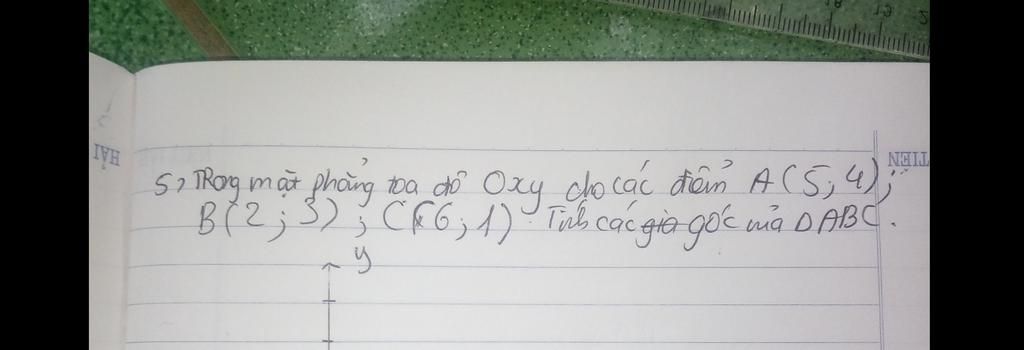 5, Trong mặt phẳng toạ độ Oxy cho các điểm A(5; 4);
B(2; 3); C(6; 1). Tính các góc của ΔABC.
y
HẢI
TIEN